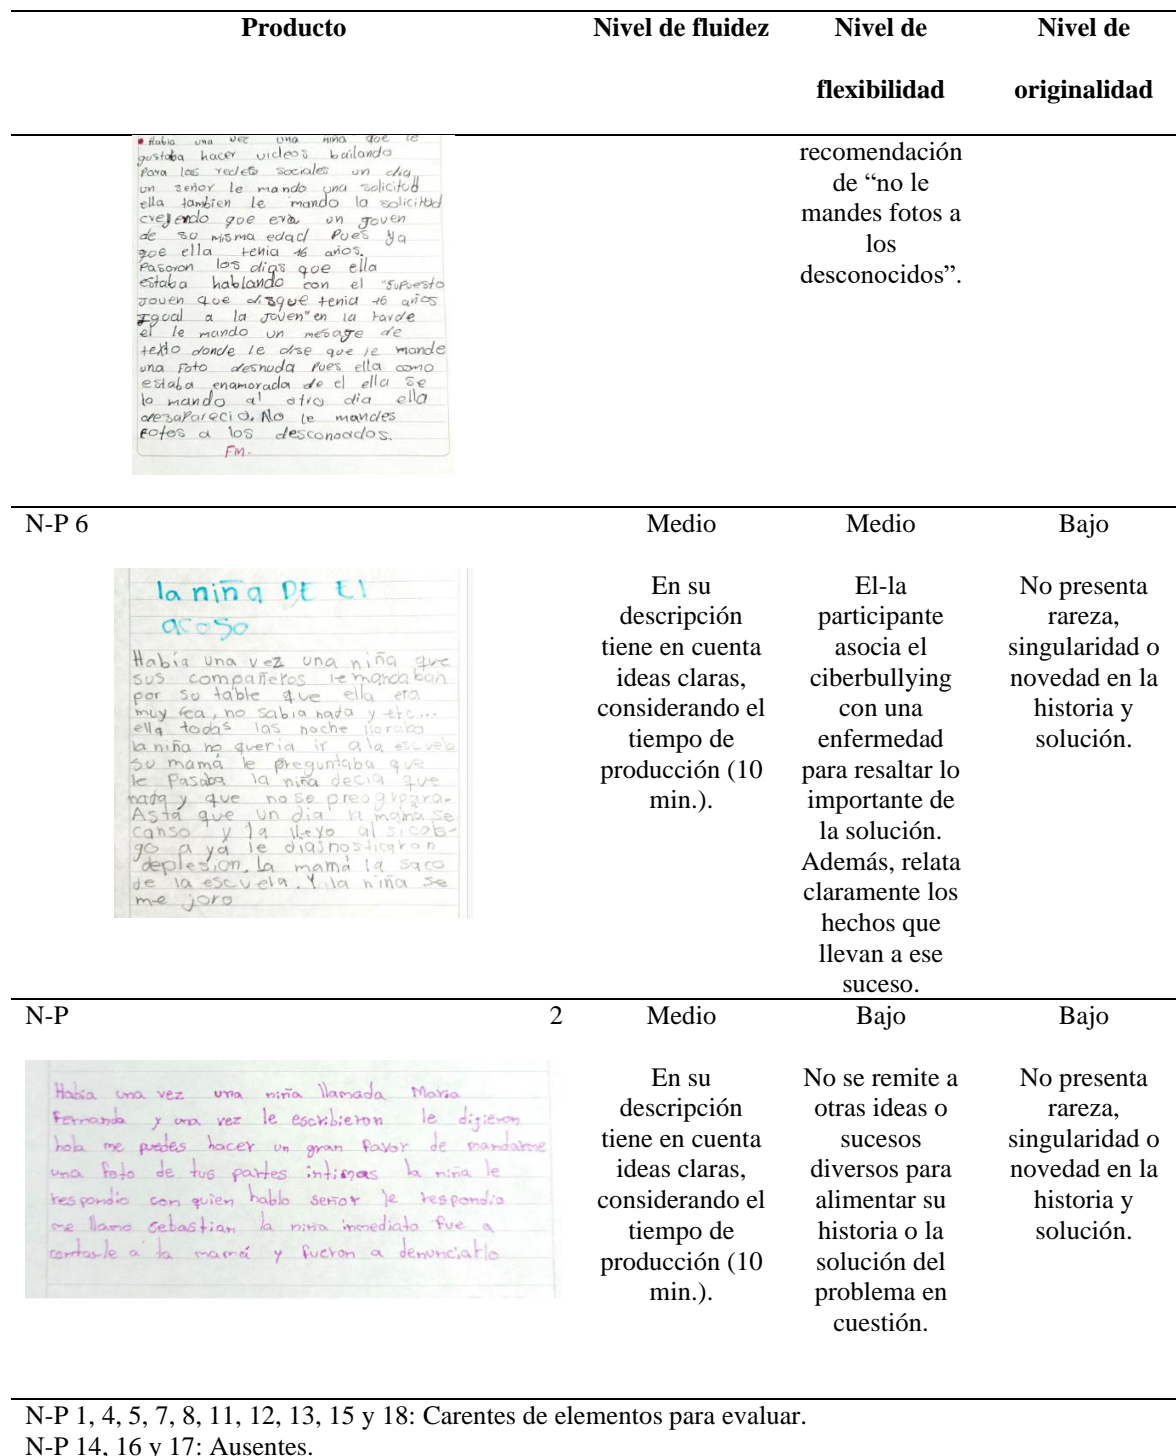 Producto Nivel de fluidez Nivel de flexibilidad Nivel de originalidad
• Habia una vez una niña que le
gustaba hacer videos bailando
Para las redets sociales un dia
un señor le mando una solicitud
ella tambien le mando la solicitud
creyendo que era un joven
de su misma edad Pues ya
que ella tenia 16 años.
Pasoron los dias que ella
estaba hablando con el "supuesto
joven que disque tenia 16 años
Igual a la Joven" en la tarde
el le mando un mesage de
texto donde le dise que le mande
una Foto desnuda Pues ella como
estaba enamorada de el ella se
lo mando al otro dia ella
desaParecio. No le mandes
Fotos a los desconocidos.
FM.
recomendación
de “no le
mandes fotos a
los
desconocidos”.
N-P 6
la niña DE El
acoso
Había una vez una niña que
sus compañeros le mandaban
por su table que ella era
muy fea, no sabia nada y etc...
ella todas las noche lloraba
la niña no queria ir a la escuela
su mamá le preguntaba que
le Pasaba la niña decia que
nada y que no se preocupara.
Asta que un dia la mama se
canso y la llevo al sicolo-
go a yá le diagnosticaron
deplesion. La mamá la saco
de la escuela. Y la niña se
me joro
Medio
En su
descripción
tiene en cuenta
ideas claras,
considerando el
tiempo de
producción (10
min.).
Medio
El-la
participante
asocia el
ciberbullying
con una
enfermedad
para resaltar lo
importante de
la solución.
Además, relata
claramente los
hechos que
llevan a ese
suceso.
Bajo
No presenta
rareza,
singularidad o
novedad en la
historia y
solución.
N-P 2
Había una vez una niña llamada Maria
Fernanda y una vez le escribieron le digieron
hola me puedes hacer un gran favor de mandarme
una foto de tus partes intimas la niña le
respondio con quien hablo señor le respondio
me llamo sebastian la niña inmediato fue a
contarle a la mamá y fueron a denunciarlo
Medio
En su
descripción
tiene en cuenta
ideas claras,
considerando el
tiempo de
producción (10
min.).
Bajo
No se remite a
otras ideas o
sucesos
diversos para
alimentar su
historia o la
solución del
problema en
cuestión.
Bajo
No presenta
rareza,
singularidad o
novedad en la
historia y
solución.
N-P 1, 4, 5, 7, 8, 11, 12, 13, 15 y 18: Carentes de elementos para evaluar.
N-P 14, 16 y 17: Ausentes.